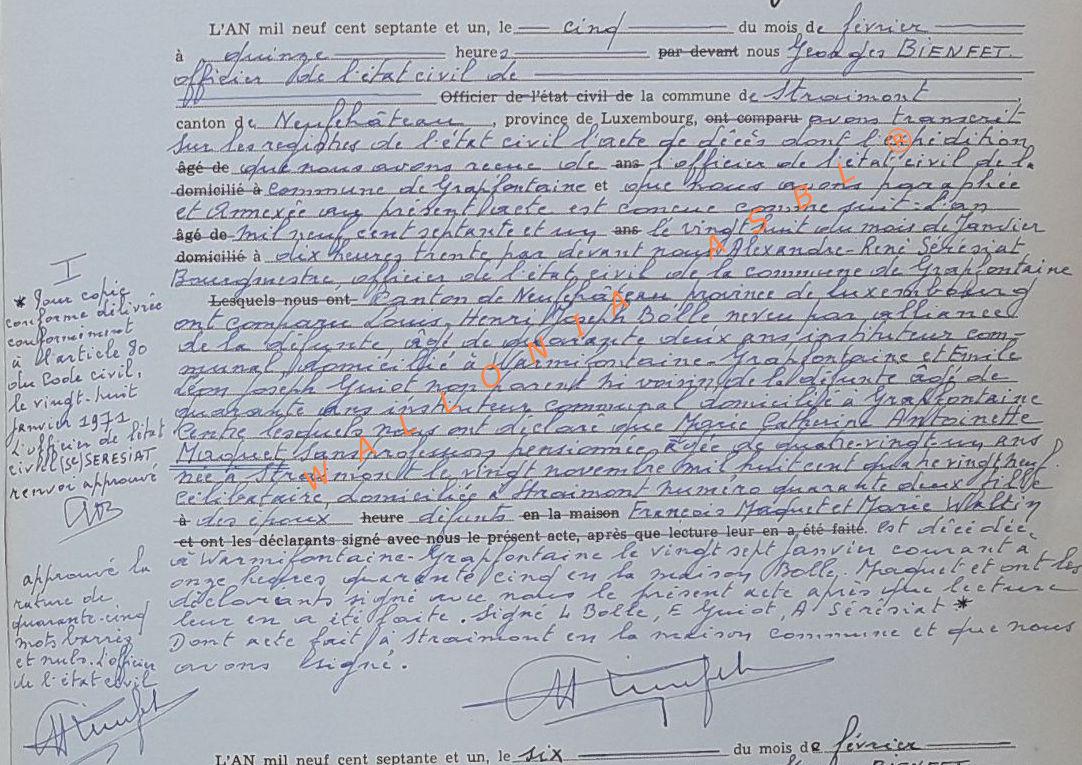 L'AN mil neuf cent septante et un, le cinq du mois de février
à quinze heures par devant nous Georges BIENFET
officier de l'état civil de
Officier de l'état civil de la commune de Straimont,
canton de Neufchâteau, province de Luxembourg, ont comparu avons transcrit
sur les registres de l'état civil l'acte de décès dont l'expédition
âgé de que nous avons reçue de ans l'officier de l'état civil de la
domicilié à commune de Grapfontaine et que nous avons paraphée
et Annexée au présent acte est conçue comme suit: L'an
âgé de mil neuf cent septante et un ans le vingt huit du mois de Janvier
domicilié à dix heures trente par devant nous Alexandre-René Sérésiat,
Bourgmestre, officier de l'état civil de la commune de Grapfontaine
Lesquels nous ont Canton de Neufchâteau, province de Luxembourg
ont comparu Louis, Henri Joseph Bolle neveu par alliance
de la défunte, âgé de quarante deux ans instituteur com-
munal, domicilié à Warmifontaine-Grapfontaine et Emile
Léon Joseph Guiot non parent ni voisin de la défunte âgé de
quarante ans instituteur communal domicilié à Grapfontaine
Centre lesquels nous ont déclaré que Marie Catherine Antoinette
Maquet sans profession pensionnée âgée de quatre-vingt un ans
née à Straimont le vingt novembre mil huit cent quatre vingt neuf
célibataire, domiciliée à Straimont numéro quarante deux fille
à des époux heure défunts en la maison François Maquet et Marie Waltin
et ont les déclarants signé avec nous le présent acte, après que lecture leur en a été faite. est décédée
à Warmifontaine-Grapfontaine le vingt sept janvier courant à
onze heures quarante cinq en la maison Bolle-Maquet et ont les
déclarants signé avec nous le présent acte après que lecture
leur en a été faite. Signé L Bolle, E Guiot, A Sérésiat *
Dont acte fait à Straimont en la maison commune et que nous
avons signé.
I
* Pour copie
conforme délivrée
conformément
à l'article 80
du Code civil,
le vingt-huit
janvier 1971
L'officier de l'état
civil (sé) SERESIAT
renvoi approuvé
approuvé la
rature de
quarante-cinq
mots barrés
et nuls. L'officier
de l'état civil
WALLONIA ASBL @
L'AN mil neuf cent septante et un, le six du mois de février
BIENFET